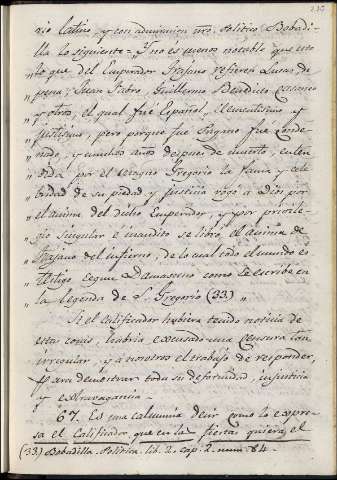 rio latino, y con admiracion nro. Politico Bobadi-
lla lo siguiente = "Y no es menos notable que esto
"to que del Emperador Trajano refieren Lucas de
"pena, Juan Fabro, Guillermo Benedicto Casaneo
"y otros, el qual fué Español, Clementisimo y
"justisimo, pero porque fue Pagano fue conde-
"nado, y muchos años despues de muerto, enten-
"dida por el Gregorio la fama y cele-
"bridad de su piedad y Justicia rogó a Dios por
"el anima del dicho Emperador, y por privile-
"gio singular e inaudito se libró el anima de
"Trajano del infierno, de lo cual todo el mundo es
"testigo segun Damasceno como se escribe en
"la legenda de S. Gregorio (33) "
Si el Calificador hubiera tenido noticia de
esta comis, habria excusado una censura tan
irregular, y a nosotros el trabajo de responder,
para demostrar toda su deformidad, injusticia
y extravagancia.
67. Es una calumnia decir como lo expre-
sa el Calificador, que en la fiesta quiera el
(33) Bobadilla. Politica. lib. 2. cap. 2. num. 84.